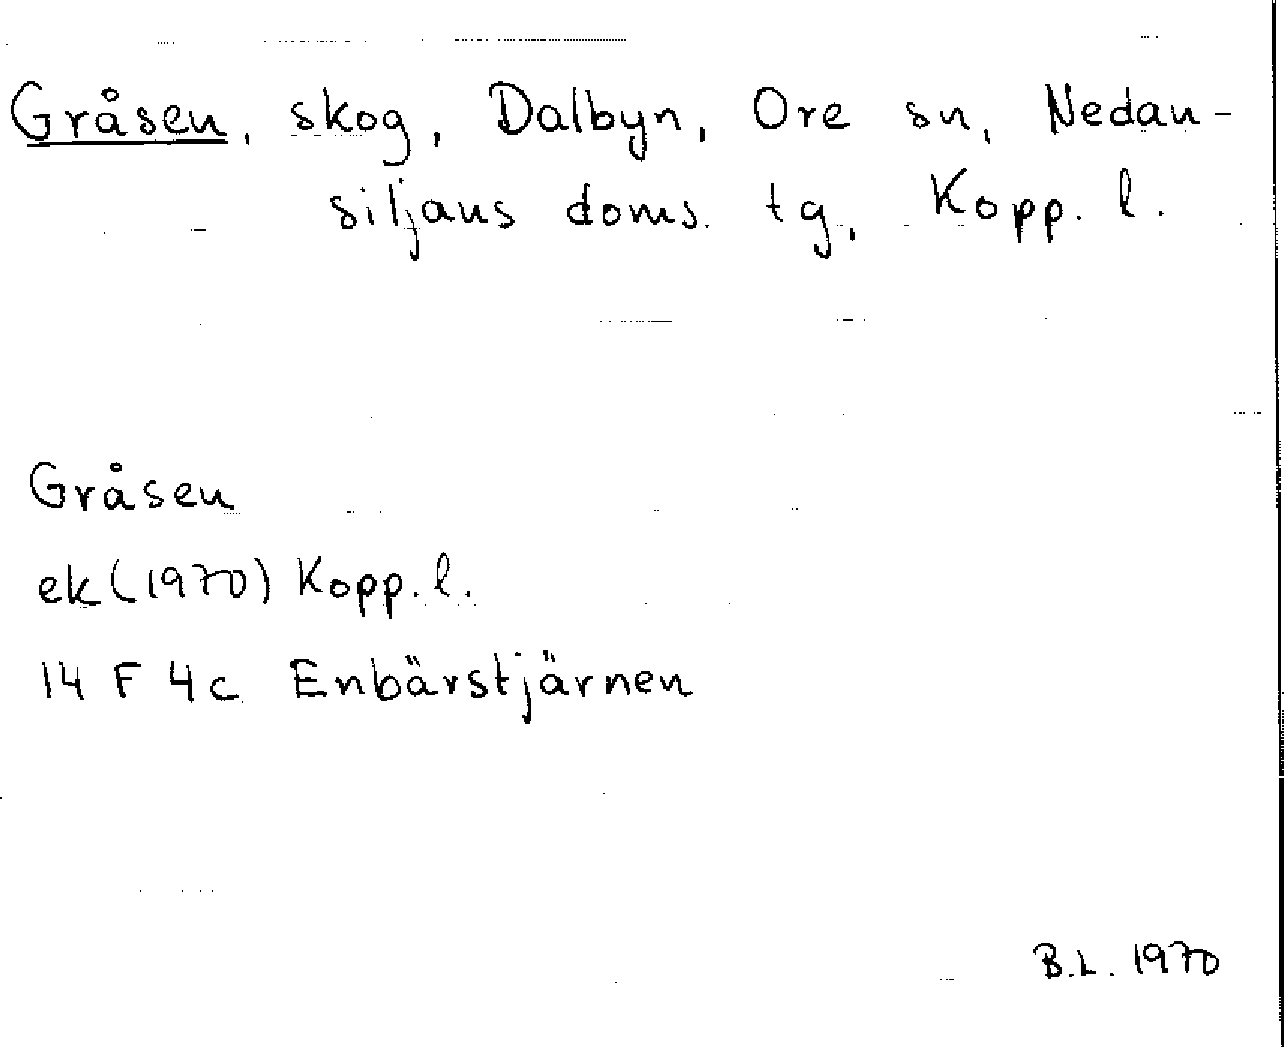 Gråsen, skog, Dalbyn, Ore sn, Nedan-
siljans doms. tg, Kopp. l.
Gråsen
ek (1970) Kopp. l.
14 F 4c Enbärstjärnen
B.L. 1970